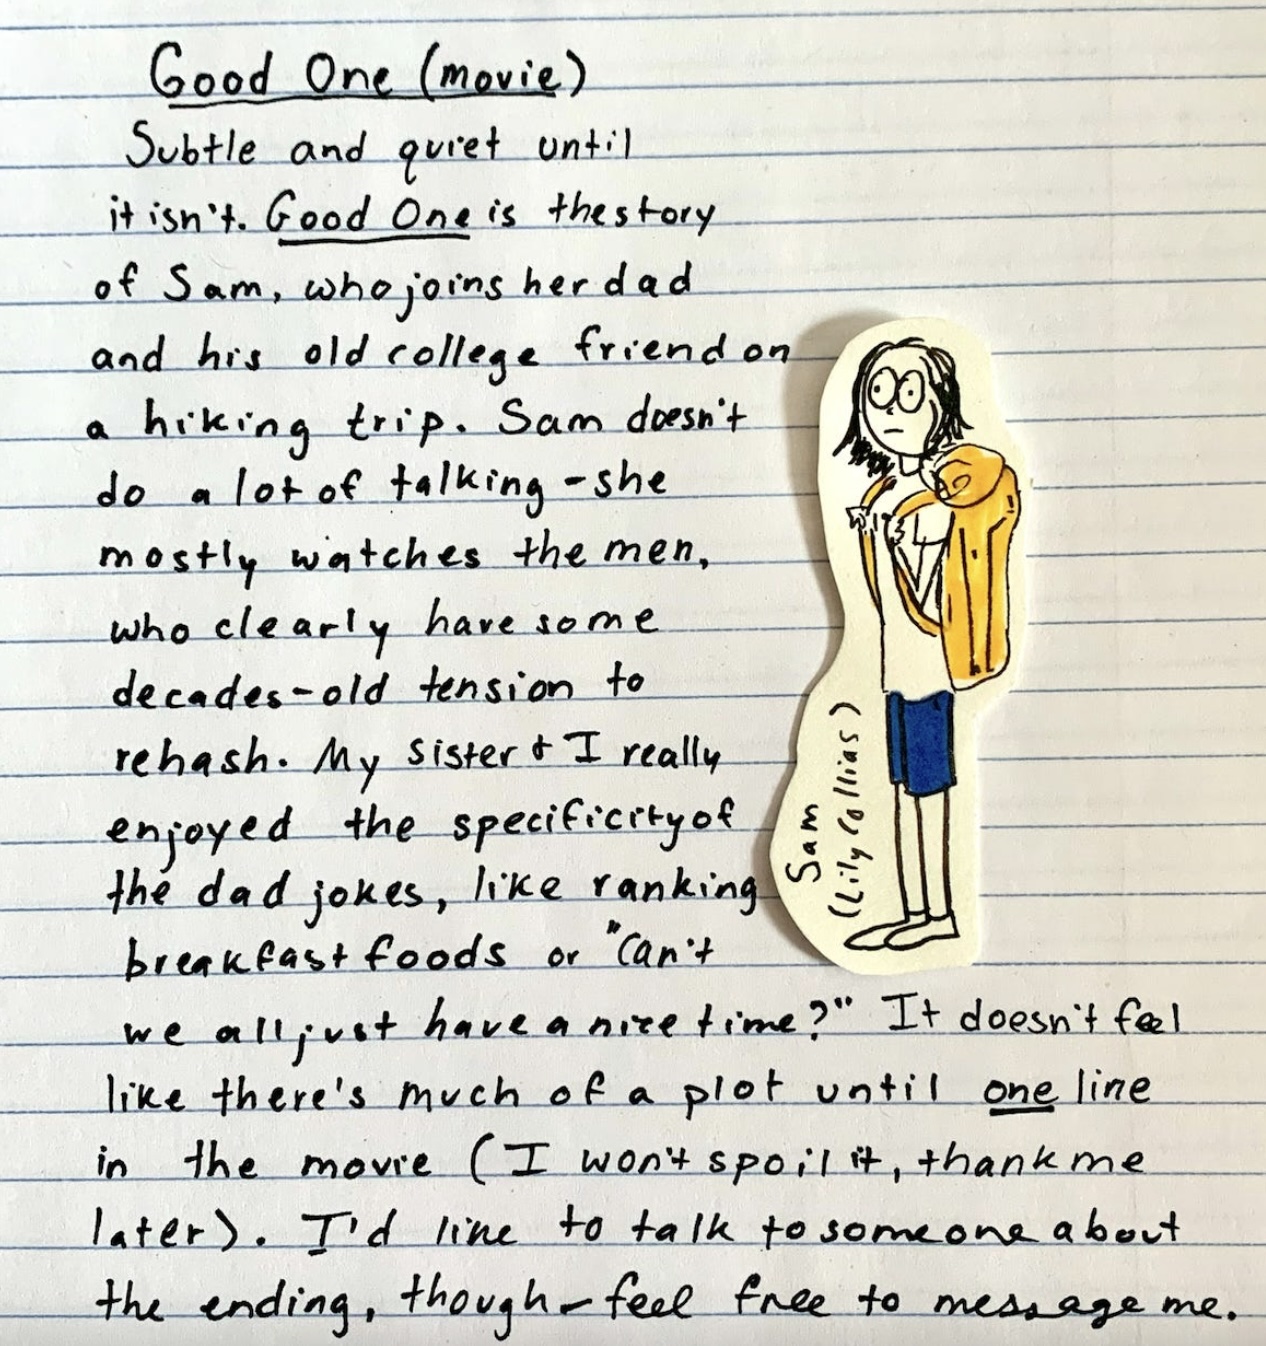 Good One (movie)
Subtle and quiet until
it isn't. Good One is the story
of Sam, who joins her dad
and his old college friend on
a hiking trip. Sam doesn't
do a lot of talking - she
mostly watches the men,
who clearly have some
decades-old tension to
rehash. My sister + I really
enjoyed the specificity of
the dad jokes, like ranking
breakfast foods or "Can't
we all just have a nice time?" It doesn't feel
like there's much of a plot until one line
in the movie (I won't spoil it, thank me
later). I'd like to talk to someone about
the ending, though - feel free to message me.
Sam
(Lily Collias)